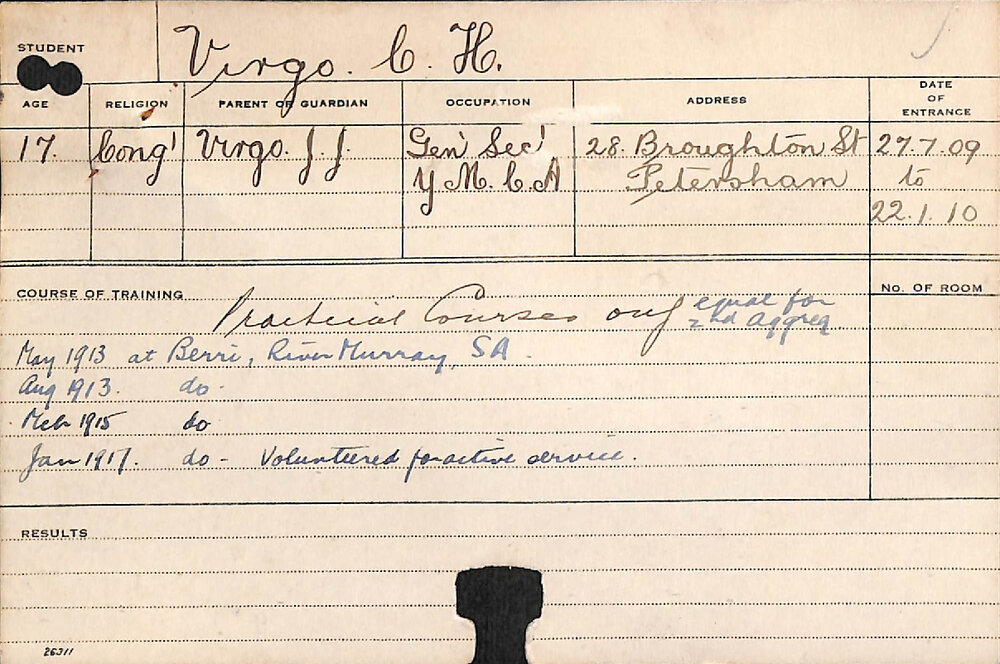 STUDENT Virgo. C. H.
AGE RELIGION PARENT OF GUARDIAN OCCUPATION ADDRESS DATE OF ENTRANCE
17. Cong' Virgo. J. J. Gen' Sec' 28. Broughton St 27.7.09
Y M. C. A Petersham to
22.1.10
COURSE OF TRAINING Practical Courses only equal for No. OF ROOM
2nd Aggreg.
May 1913 at Berri, River Murray, SA.
Aug 1913. do.
Mch 1915 do
Jan 1917. do - Volunteered for active service.
RESULTS
26311